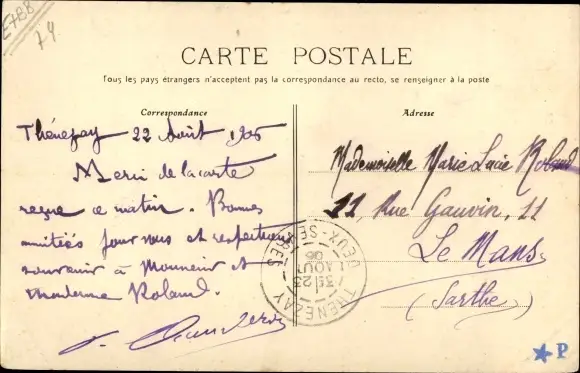 E788
74
CARTE POSTALE
Tous les pays étrangers n'acceptent pas la correspondance au recto, se renseigner à la poste
Correspondance
Thénezay 22 Août 1906
Merci de la carte
reçue ce matin. Bonnes
amitiés pour vous et respectueux
souvenir à Monsieur et
Madame Roland.
Adresse
Mademoiselle Marie Lucie Roland
11 Rue Gauvin, 11
Le Mans
(Sarthe)
THENEZAY
DEUX-SEVRES
23
AOUT
06
P